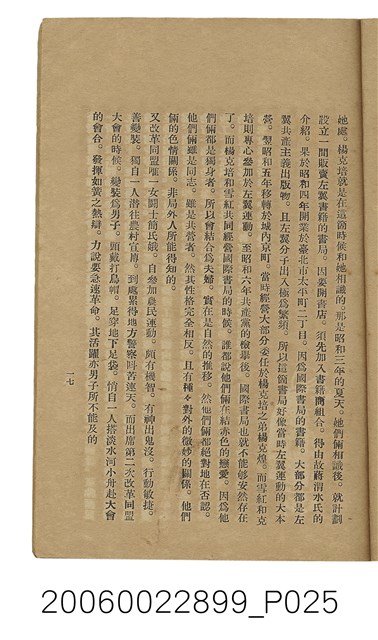 她處。楊克培就是在這箇時候和她相識的。那是昭和三年的夏天。她們倆相識後。就計劃
設立一間販賣左翼書籍的書局。因要開書店。須先加入書籍商組合。得由故蔣渭水氏的
介紹。果於昭和四年開業於臺北市太平町二丁目。因爲國際書局的書籍。大部分都是左
翼共產主義出版物。且左翼分子出入極爲繁須。所以這箇書局好像當時左翼運動的大本
營。翌昭和五年移轉於城內京町。當時經營大部分委任於楊克培之弟楊克煌。而雪紅和克
培則專心參加於左翼運動。至昭和六年共產黨的檢擧後。國際書局也就不能够安然存在
了。而楊克培和雪紅共同經營國際書局的時候。誰都說他們倆在結赤色的戀愛。因爲他
們倆都是獨身者。所以會結合爲夫婦。實在是自然的推移。然他們倆都絕對地在否認。
他們倆雖是同志。雖是共營者。然其性格完全相反。且有種々對外的微妙的關係。他們
倆的色情關係。非局外人所能得知的。
又改革同盟唯一女鬪士簡氏娥。自參加農民運動。頗有機智。有神出鬼沒。行動敏捷。
善變裝。獨自一人潛往農村宣傳。到處累得地方警察叫苦連天。而出席第二次改革同盟
大會的時候。變裝爲男子。頭戴打鳥帽。足穿地下足袋。悄自一人搭淡水河小舟赴大會
的會合。發揮如簧之熱辯。力說要急速革命。其活躍亦男子所不能及的
一七
20060022899_P025